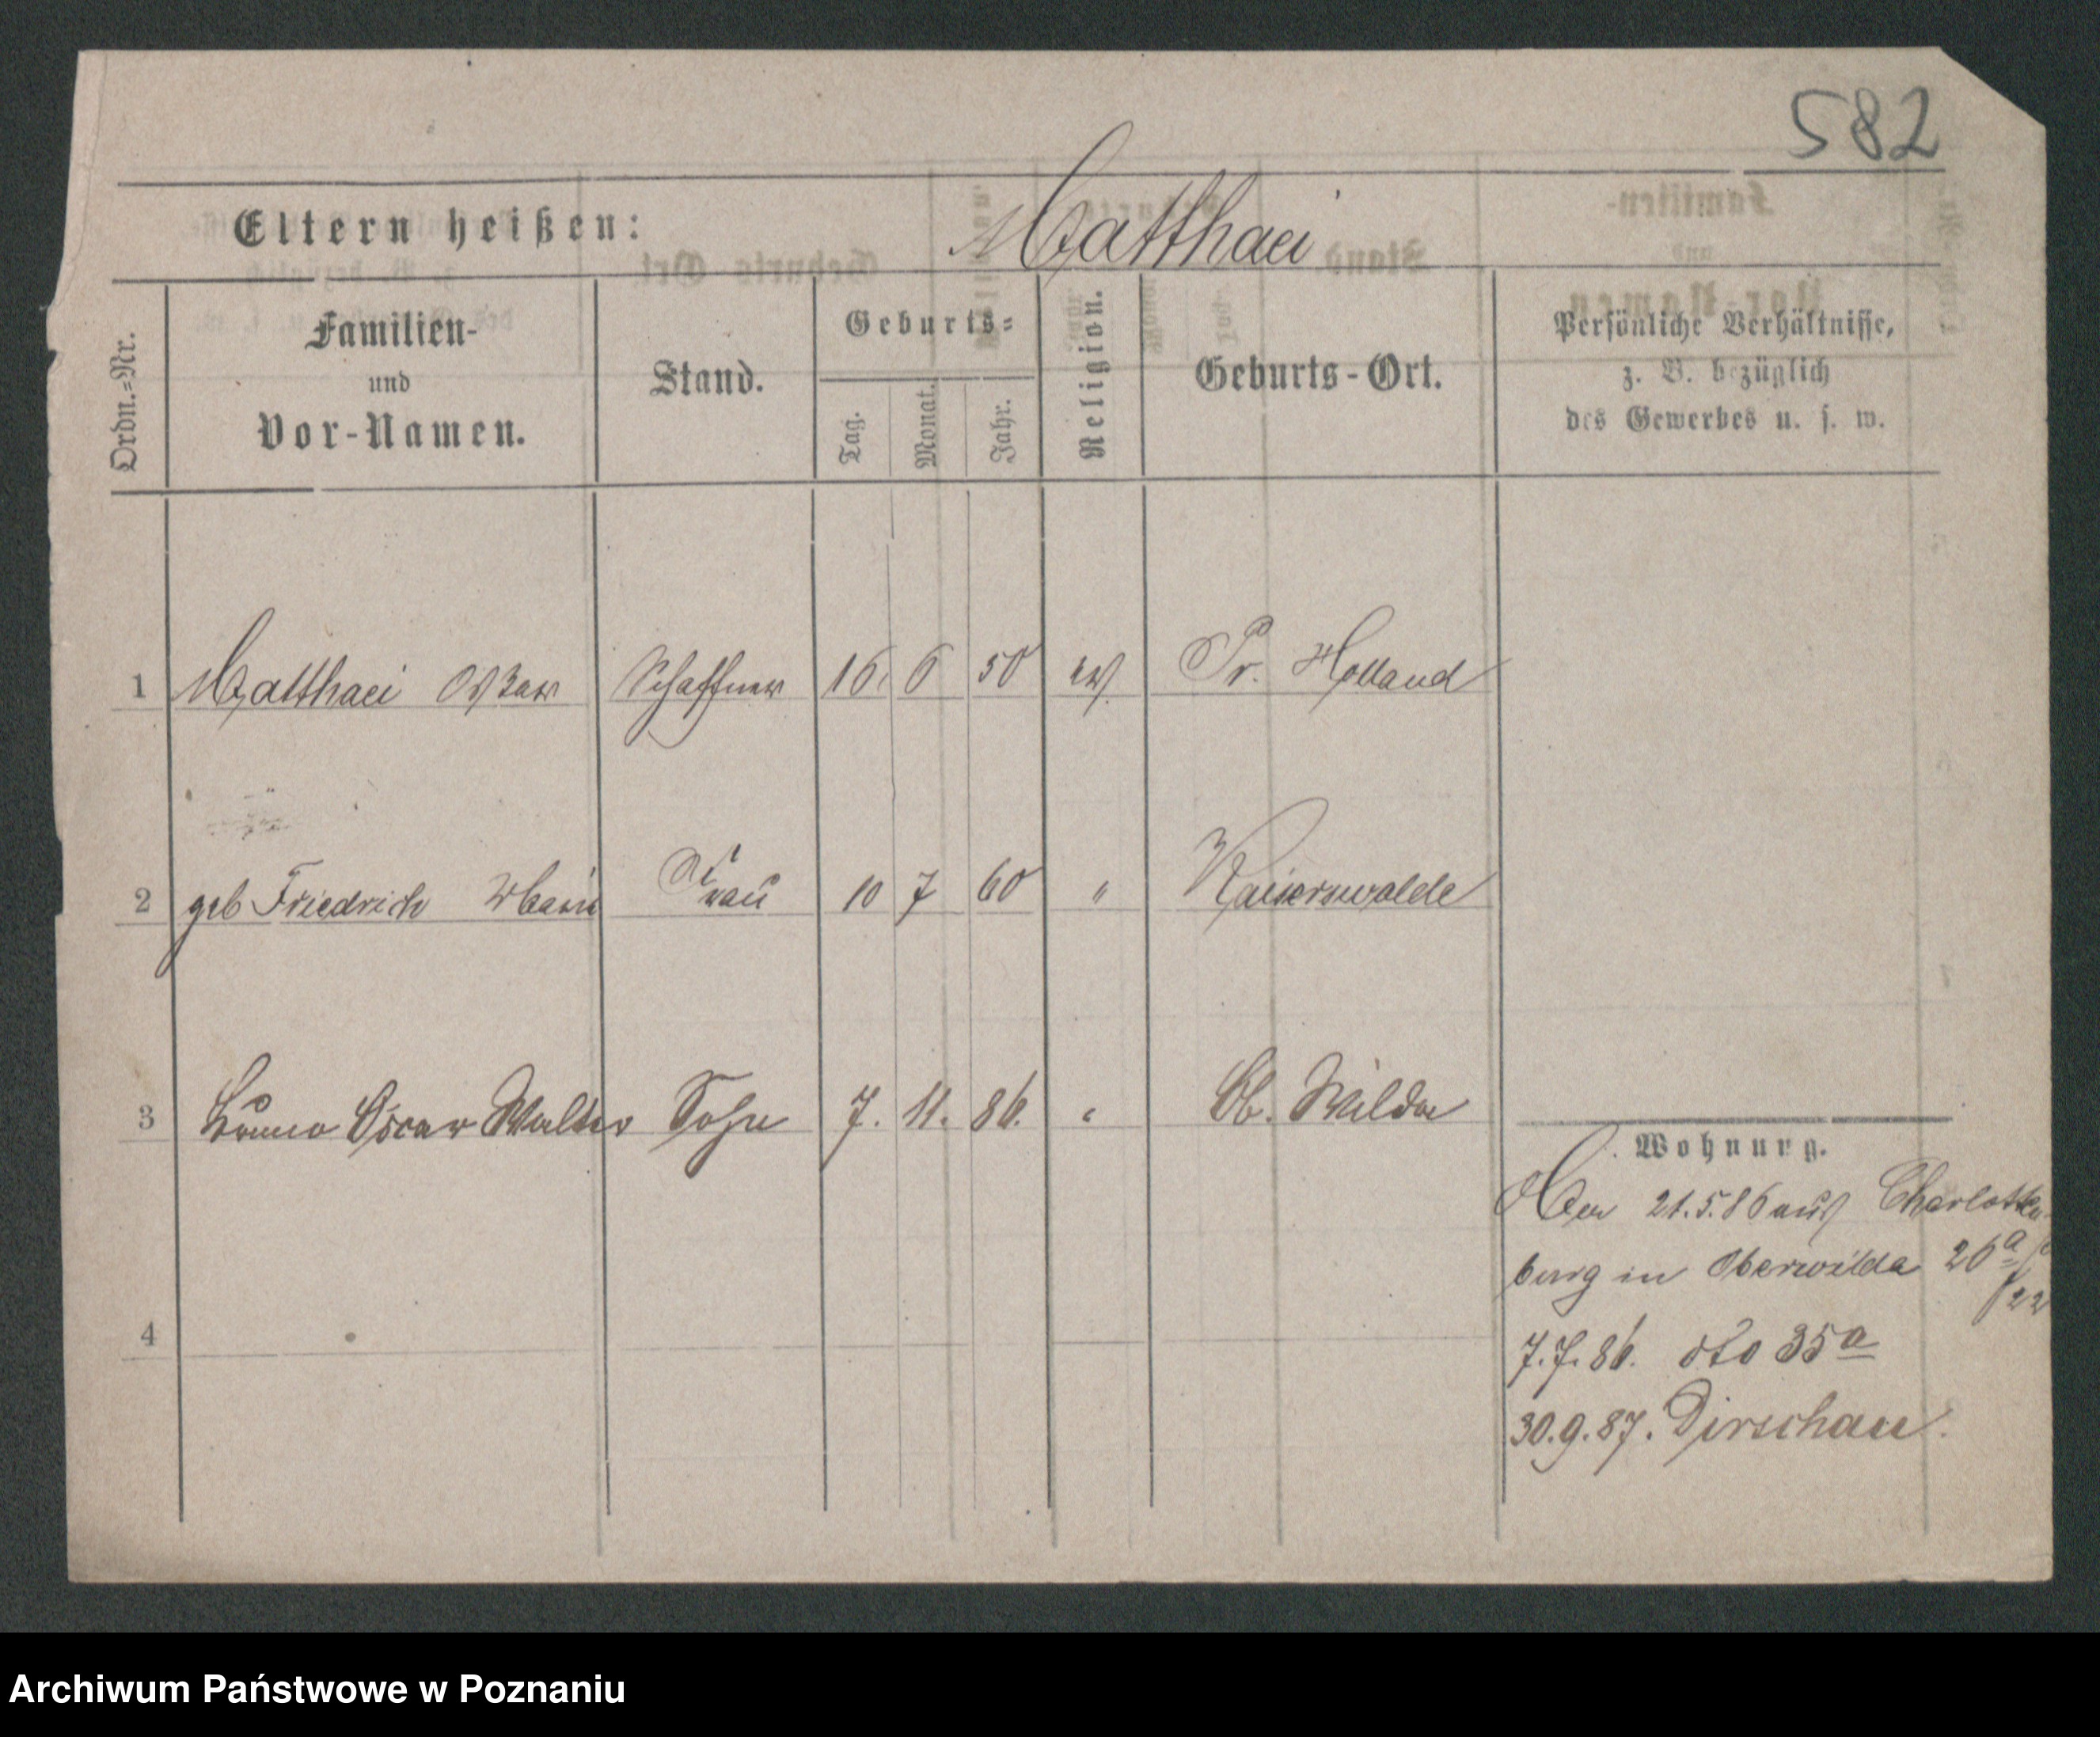 582
Eltern heißen: Matthaei
Ordn.=Nr.
Familien-
und
Vor-Namen.
Stand.
Geburts=
Tag.
Monat.
Jahr.
Religion.
Geburts-Ort.
Persönliche Verhältnisse,
z. B. bezüglich
des Gewerbes u. s. w.
1 Matthaei Oskar Schaffner 16. 6 50 ev. Pr. Holland
2 geb Friedrich Frau 10 7 60 " Kaiserswalde
3 Bruno Oscar Walter Sohn 7. 11. 86. " Ob. Wilda
4
Wohnung.
21.5.86 aus Charlotten
burg in Oberwilda 26a
22
7.7.86. dto 35a
30.9.87. Dirschau.
Archiwum Państwowe w Poznaniu